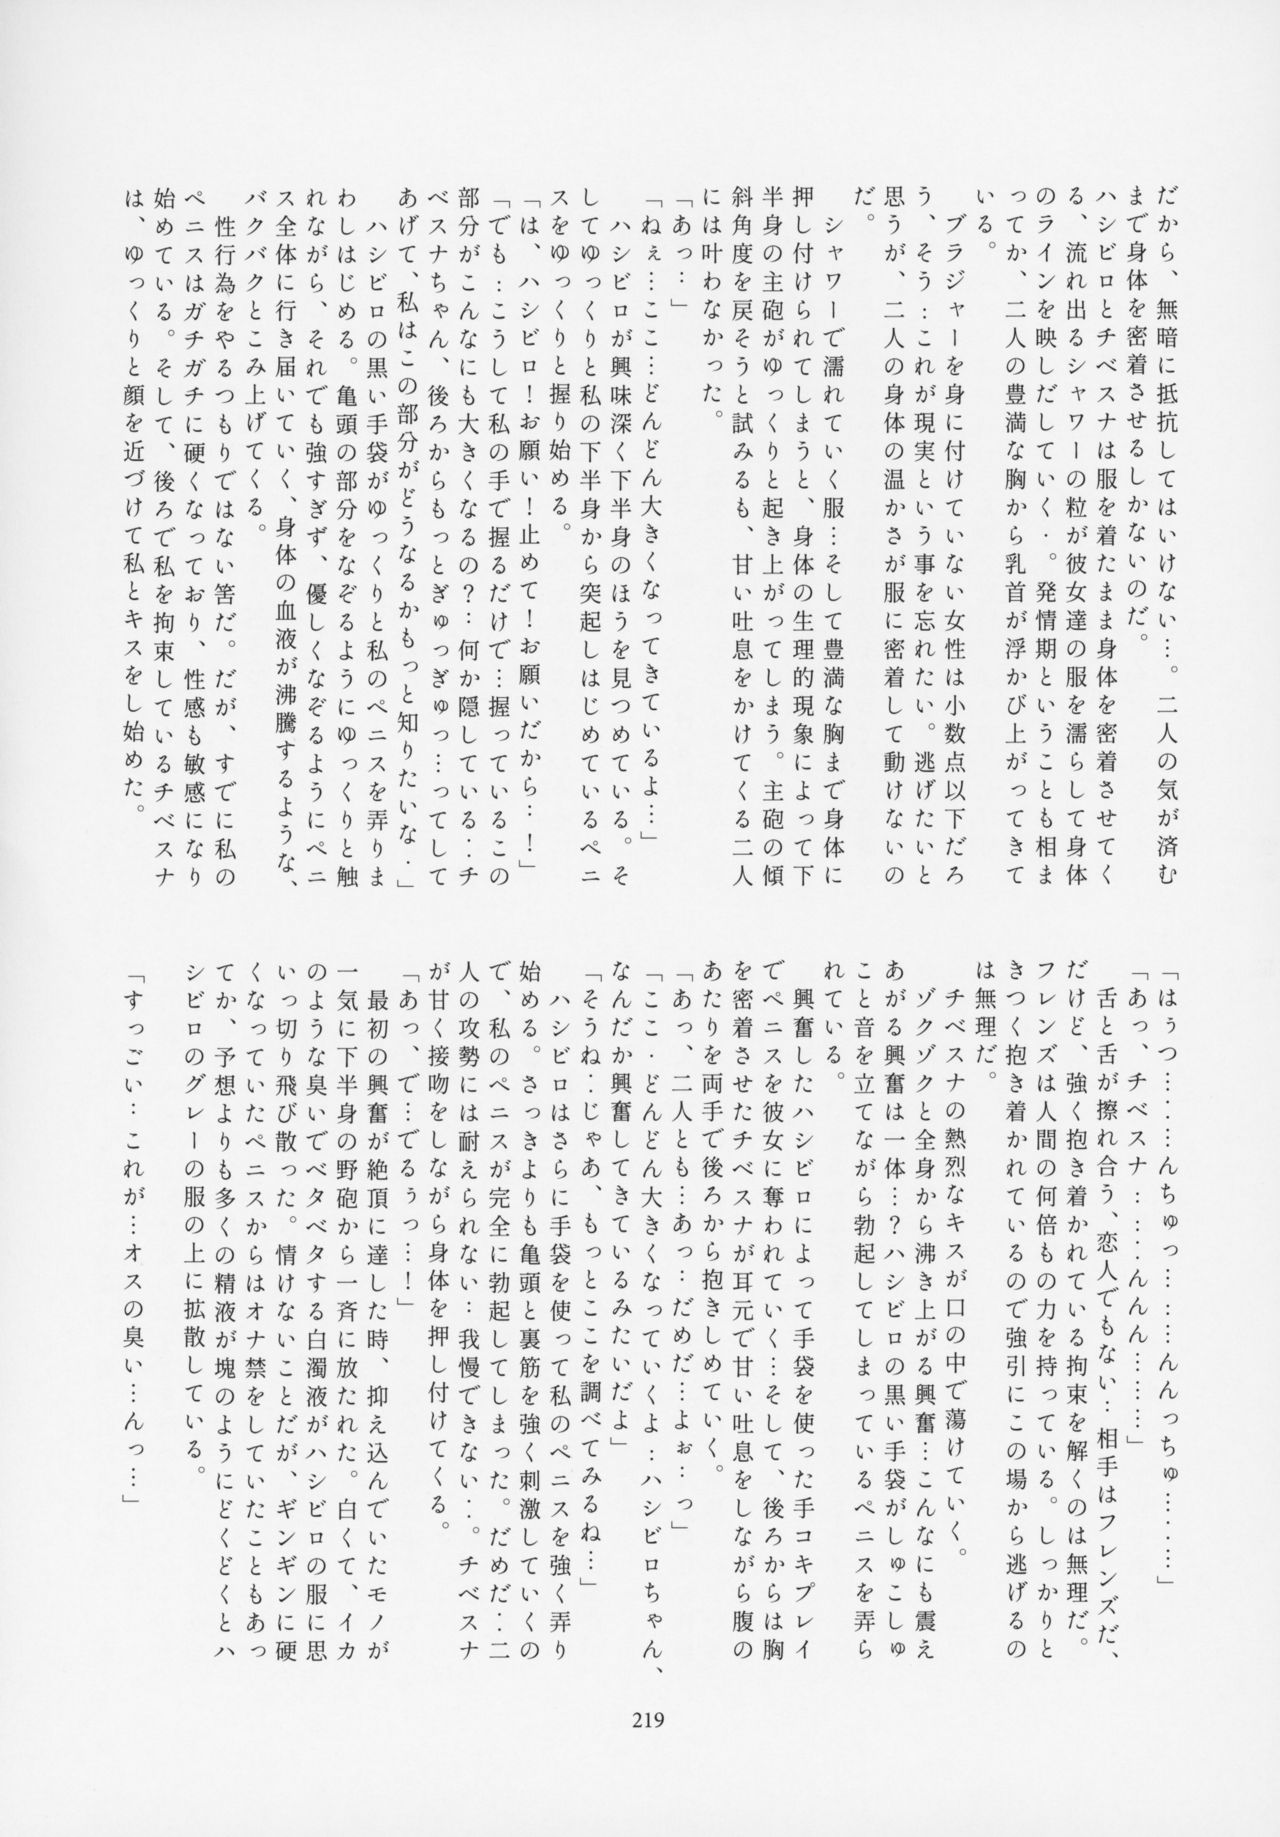 だから、無暗に抵抗してはいけない…。二人の気が済む
まで身体を密着させるしかないのだ。
ハシビロとチベスナは服を着たまま身体を密着させてく
る、流れ出るシャワーの粒が彼女達の服を濡らして身体
のラインを映しだしていく‥。発情期ということも相ま
ってか、二人の豊満な胸から乳首が浮かび上がってきて
いる。
ブラジャーを身に付けていない女性は小数点以下だろ
う、そう…これが現実という事を忘れたい。逃げたいと
思うが、二人の身体の温かさが服に密着して動けないの
だ。
シャワーで濡れていく服…そして豊満な胸まで身体に
押し付けられてしまうと、身体の生理的現象によって下
半身の主砲がゆっくりと起き上がってしまう。主砲の傾
斜角度を戻そうと試みるも、甘い吐息をかけてくる二人
には叶わなかった。
「あっ…」
「ねぇ…ここ…どんどん大きくなってきているよ…」
ハシビロが興味深く下半身のほうを見つめている。そ
してゆっくりと私の下半身から突起しはじめているペニ
スをゆっくりと握り始める。
「は、ハシビロ！お願い！止めて！お願いだから…！」
「でも…こうして私の手で握るだけで…握っているこの
部分がこんなにも大きくなるの？‥何か隠している‥チ
ベスナちゃん、後ろからもっとぎゅっぎゅっ…ってして
あげて、私はこの部分がどうなるかもっと知りたいな‥」
ハシビロの黒い手袋がゆっくりと私のペニスを弄りま
わしはじめる。亀頭の部分をなぞるようにゆっくりと触
れながら、それでも強すぎず、優しくなぞるようにペニ
ス全体に行き届いていく、身体の血液が沸騰するような、
バクバクとこみ上げてくる。
性行為をやるつもりではない筈だ。だが、すでに私の
ペニスはガチガチに硬くなっており、性感も敏感になり
始めている。そして、後ろで私を拘束しているチベスナ
は、ゆっくりと顔を近づけて私とキスをし始めた。
「はぅつ……んちゅっ……んんっちゅ……」
「あっ、チベスナ……んんん……」
舌と舌が擦れ合う、恋人でもない…相手はフレンズだ、
だけど、強く抱き着かれている拘束を解くのは無理だ。
フレンズは人間の何倍もの力を持っている。しっかりと
きつく抱き着かれているので強引にこの場から逃げるの
は無理だ。
チベスナの熱烈なキスが口の中で蕩けていく。
ゾクゾクと全身から沸き上がる興奮…こんなにも震え
あがる興奮は一体…？ハシビロの黒い手袋がしゅこしゅ
こと音を立てながら勃起してしまっているペニスを弄ら
れている。
興奮したハシビロによって手袋を使った手コキプレイ
でペニスを彼女に奪われていく…そして、後ろからは胸
を密着させたチベスナが耳元で甘い吐息をしながら腹の
あたりを両手で後ろから抱きしめていく。
「あっ、二人とも…あっ…だめだ…よぉ…っ」
「ここ‥どんどん大きくなっていくよ…ハシビロちゃん、
なんだか興奮してきているみたいだよ」
「そうね…じゃあ、もっとここを調べてみるね…」
ハシビロはさらに手袋を使って私のペニスを強く弄り
始める。さっきよりも亀頭と裏筋を強く刺激していくの
で、私のペニスが完全に勃起してしまった。だめだ‥二
人の攻勢には耐えられない…我慢できない…。チベスナ
が甘く接吻をしながら身体を押し付けてくる。
「あっ、で…でるぅっ…！」
最初の興奮が絶頂に達した時、抑え込んでいたモノが
一気に下半身の野砲から一斉に放たれた。白くて、イカ
のような臭いでベタベタする白濁液がハシビロの服に思
いっ切り飛び散った。情けないことだが、ギンギンに硬
くなっていたペニスからはオナ禁をしていたこともあっ
てか、予想よりも多くの精液が塊のようにどくどくとハ
シビロのグレーの服の上に拡散している。
「すっごい…これが…オスの臭い…んっ…」
219